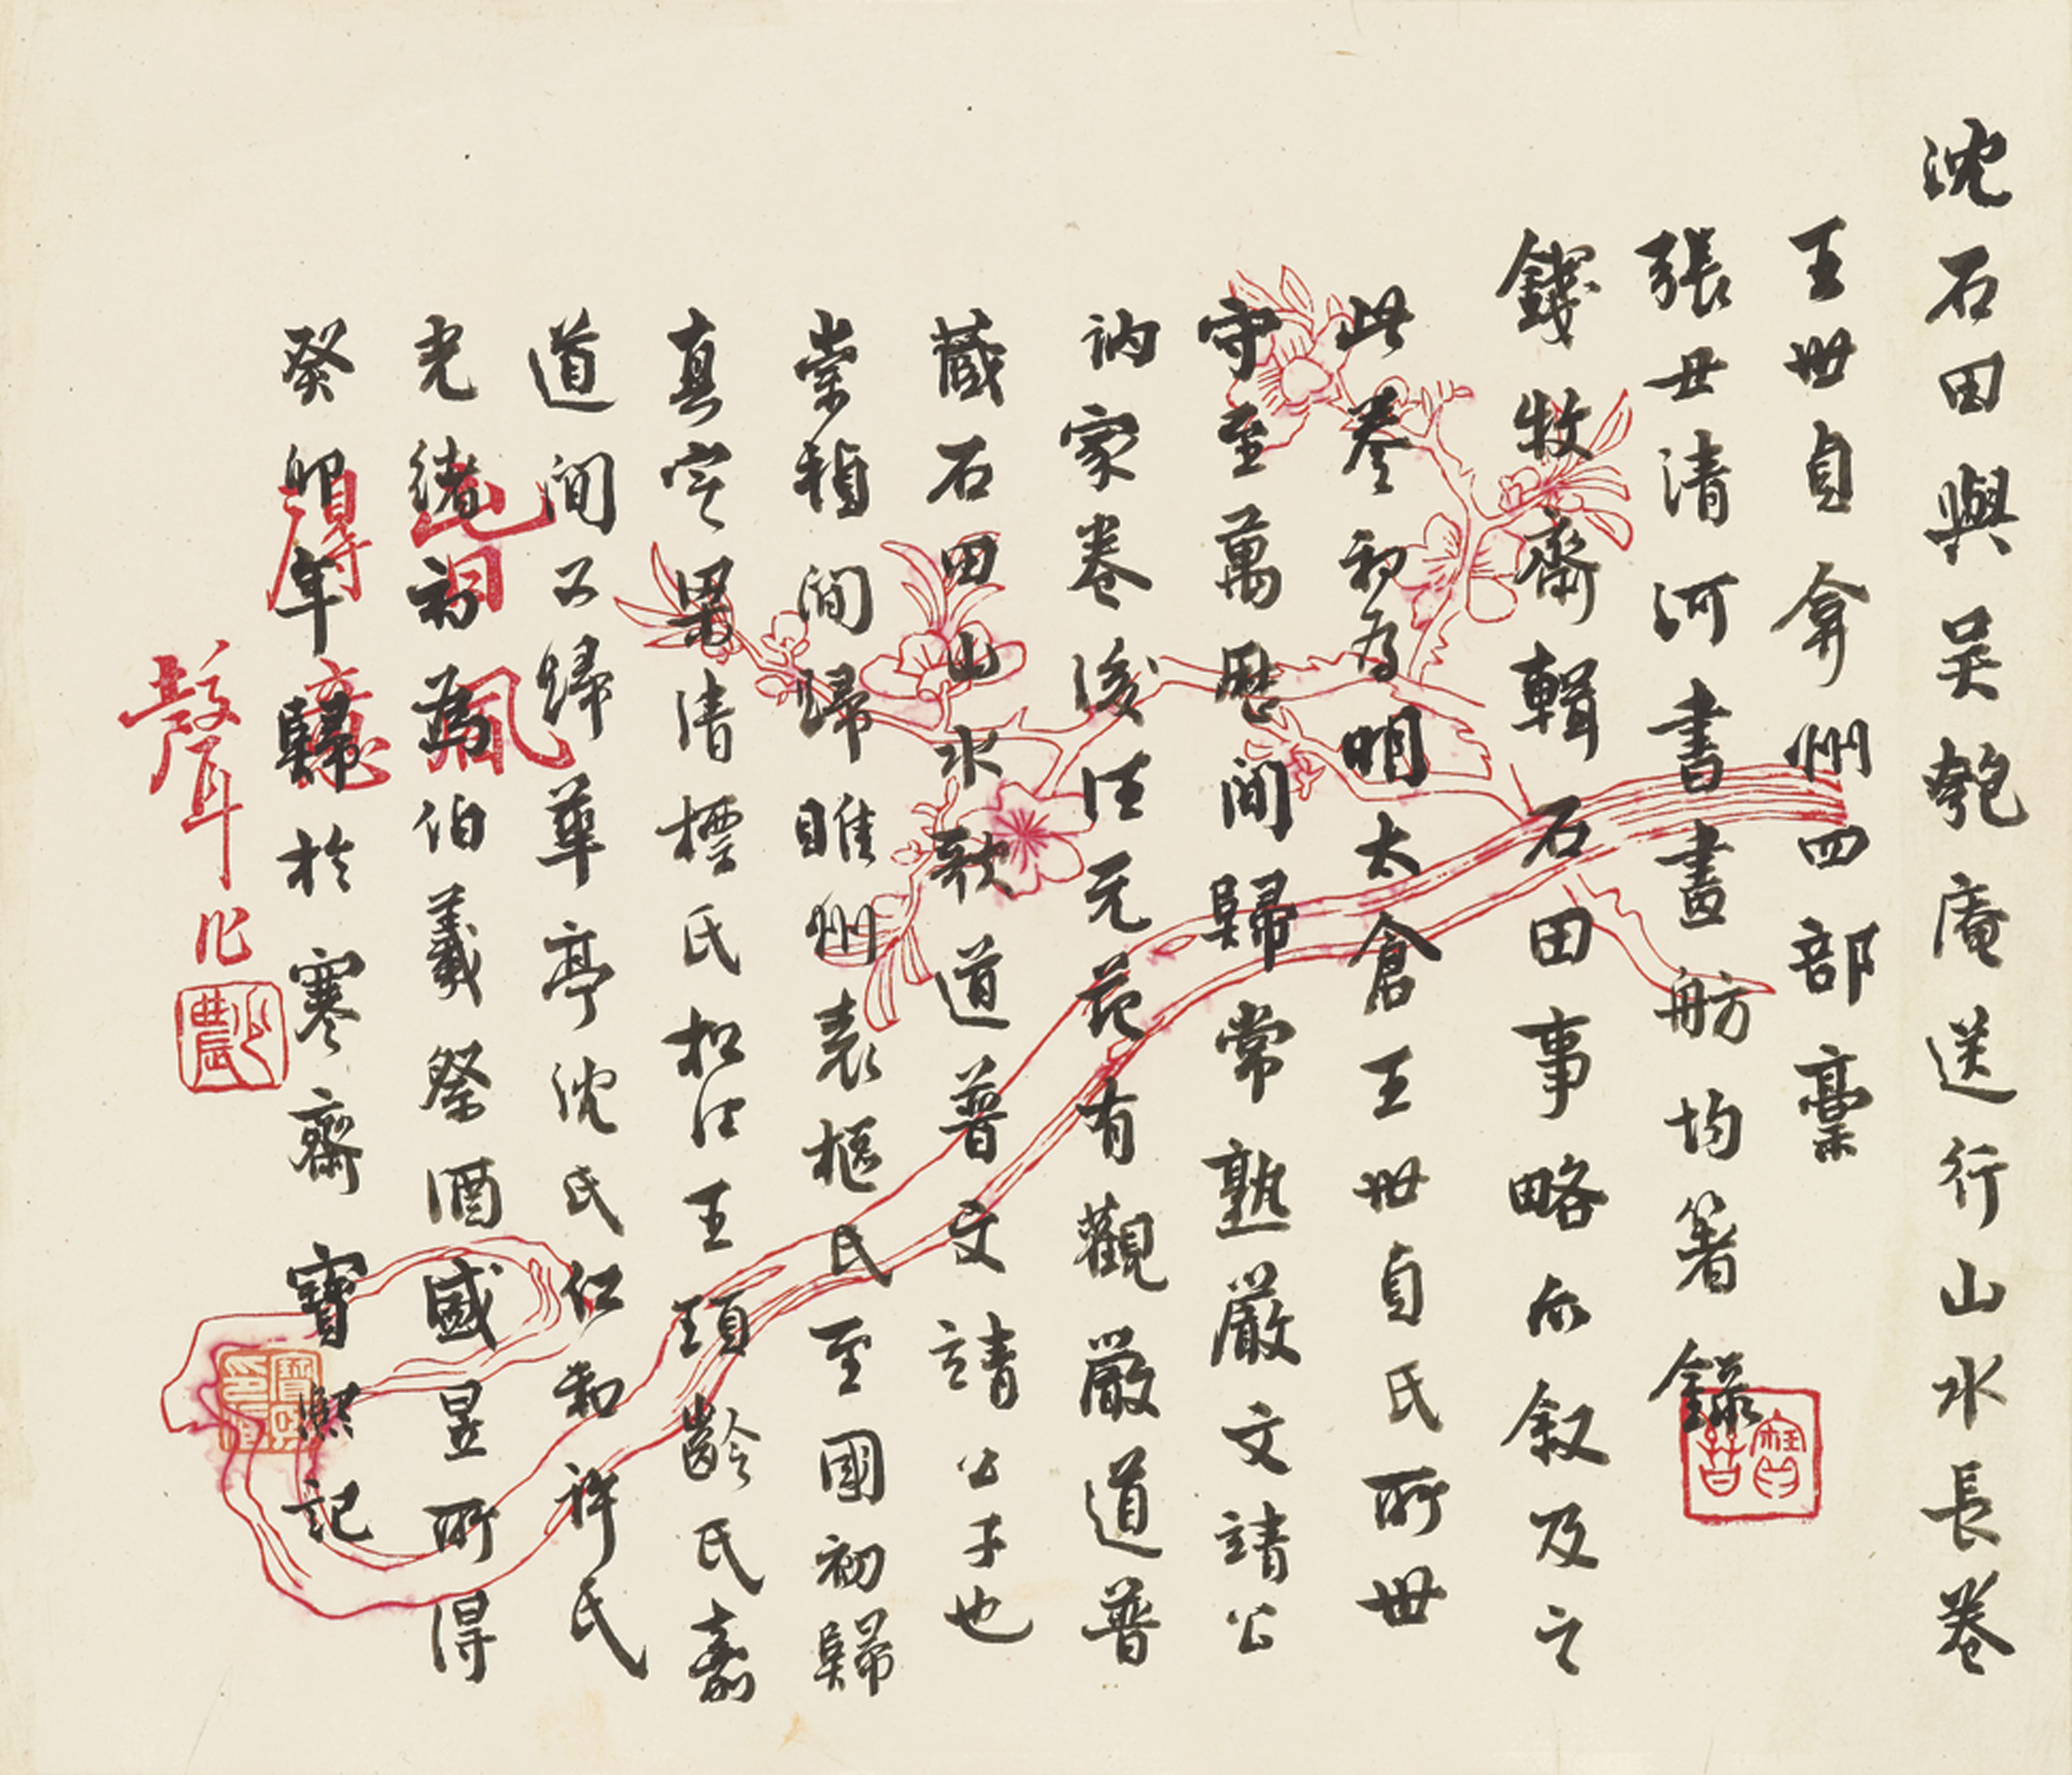 沈石田與吴匏庵送行山水長卷
王世貞弇州四部稾
張丑清河書畫舫均著錄
錢牧齋輯石田事略亦叙及之
此卷初為明太倉王世貞氏所世
守至萬厯間歸常熟嚴文請公
訥家卷後汪元范有觀嚴道普
藏石田山水歌道普文請公子也
崇禎間歸睢州袁樞氏至國初歸
真定梁清標氏松江王頊齡氏嘉
道間又歸華亭沈氏仁和許氏
光緒初為伯羲祭酒盛昱所得
癸卯年歸於寒齋寶熙記